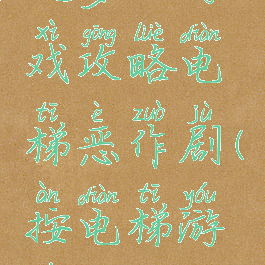 xì gōng lüè diàn
戏攻略电
tī è zuò jù
梯恶作剧(
àn diàn tī yóu
按电梯游